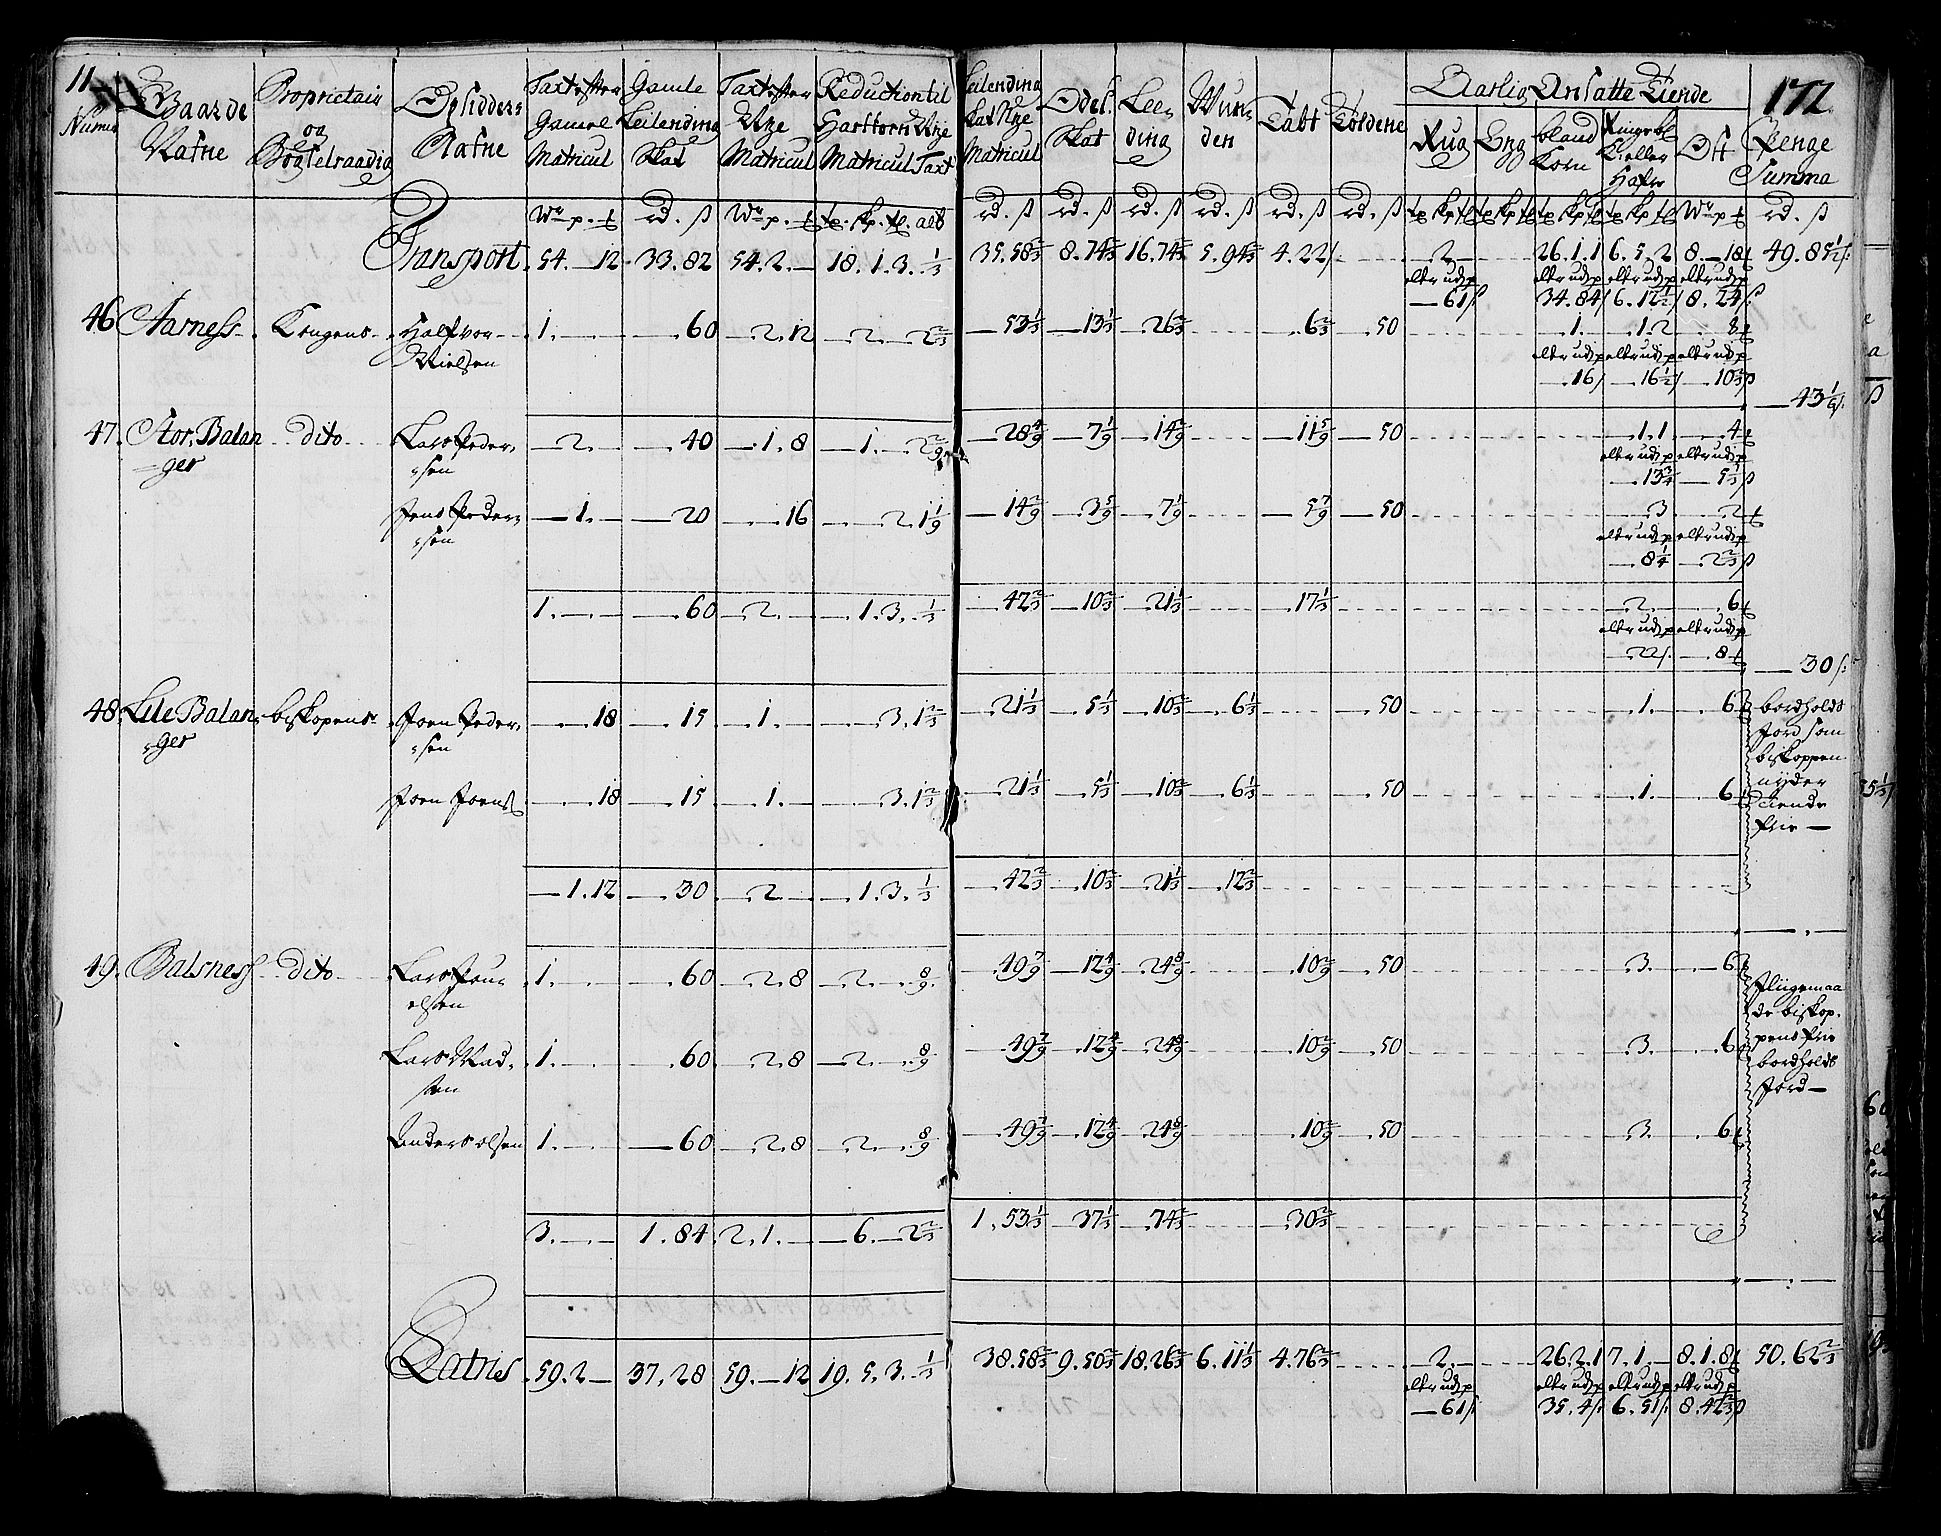 11 172
Numr Gaarde Nafne Proprietair og Bøgselraadig Opsidders Nafne Taxt efter Gamle Matricul Gamle Leilending Skat Taxt efter Nye Matricul Reduction til Hartkorn Nye Matricul Taxt Leilending Skat Nye Matricul Odel Skat Lee- ding Wun- den Tabt Aarlig Ansatte Tiende Rug Eng bland Korn Ost Penge Summa
Wr p. rd. ß Wr p. rd. ß rd. ß rd. ß rd. ß rd. ß rd. ß rd. ß
Transport 54. – 12 33.82 54.2. – 18.1.3. 1/3 35.58 2/3 8.74 2/3 16.74 2/3 5.94 2/3 4.22 – 2 – 26.1.1 6.5.2 8. – 18 49.85 1/2
– 61 ß 34.84 6.12 1/2 8.24 ß
46 Aarness Kongens Halfvor Nielsen 1. – – 60 – 2.12 – 2. – 2 2/3 – 53 1/3 – 13 1/3 – 26 2/3 – 6 2/3 – 50 – 1. – 1.2 – 8
– 16 – 16 1/2 – 10 2/3 ß
– 43 1/6
47. Stor Balan ger Dito Lars Peder- sen – 2. – – 40 – 1.8 – 1. – 2 2/9 – 28 4/9 – 7 1/9 – 14 2/9 – 11 5/9 – 50 – 1.1 – 4
– 13 3/4 – 5 1/3 ß
Jens Peder- sen – 1. – – 20 – . 16 – . 2.1 1/9 – 14 2/9 – 3 5/9 – 7 1/9 – 5 7/9 – 50 – 3 – 2
– 8 1/4 – 2 2/3 ß
1. – – 60 – 2. – – . 1.3. 1/3 – 42 2/3 – 10 2/3 – 21 1/3 – 17 1/3 – 2. – 6
– 22 – 8
– 30 ß
48. Lile Balan- ger biskopens Joen Peder- sen – . 18 – 15 – 1. – – . 3.1 2/3 – 21 1/3 – 5 1/3 – 10 2/3 – 6 1/3 – 50 – 1. – 6 bordholds Jord som biskoppen nyder tiende frie –
Joen Joens – . 18 – 15 – 1. – – . 3.1 2/3 – 21 1/3 – 5 1/3 – 10 2/3 – 6 1/3 – 50 – 1. – 6
– 1.12 – 30 – 2 – – . 1.3. 1/3 – 42 2/3 – 10 2/3 – 21 1/3 – 12 2/3
49. Balsness Dito Lars Pou- elsen 1. – – 60 – 2.8 – 2. – 8/9 – 49 7/9 – 12 4/9 – 24 8/9 – 10 2/9 – 50 – 3. – 6 Lligemaa de biskop- pens frie bordholds Jord –
Lars Mad- sen 1. – – 60 – 2.8 – 2. – 8/9 – 49 7/9 – 12 4/9 – 24 8/9 – 10 2/9 – 50 – 3. – 6
Anders olsen 1. – – 60 – 2.8 – 2. – 8/9 – 49 7/9 – 12 4/9 – 24 8/9 – 10 2/9 – 50 – 3. – 6
3. – 1.84 2.1. – – 6. – 2 2/3 1.53 1/3 – 37 1/3 – 74 2/3 – 30 2/3
Latris 59.2 – 37.28 59. – 12 19.5.3. 1/3 38.58 2/3 9.50 2/3 18.26 2/3 6.11 1/3 4.76 2/3 – 2. – 26.2.1 7.1. – 8.1.8 50.62 2/3
– 61 ß 35.4 6.51 8.42 2/3 ß